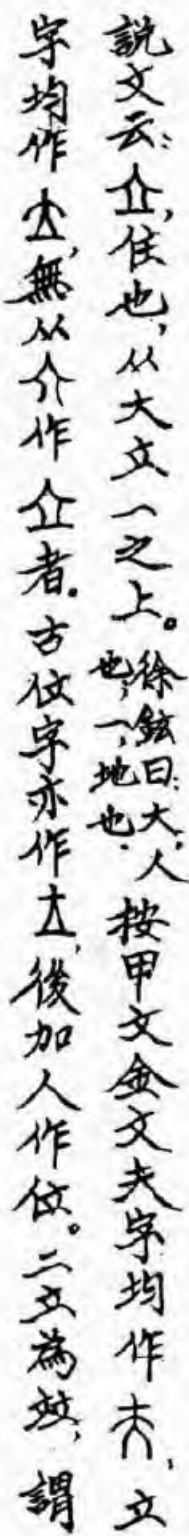 說文云：立，住也，从大立一之上。徐鉉曰：大，人也，一，地也。按甲文金文大字均作大，立
字均作立，無从介作立者。古位字亦作立，後加人作位。二立為竝，謂